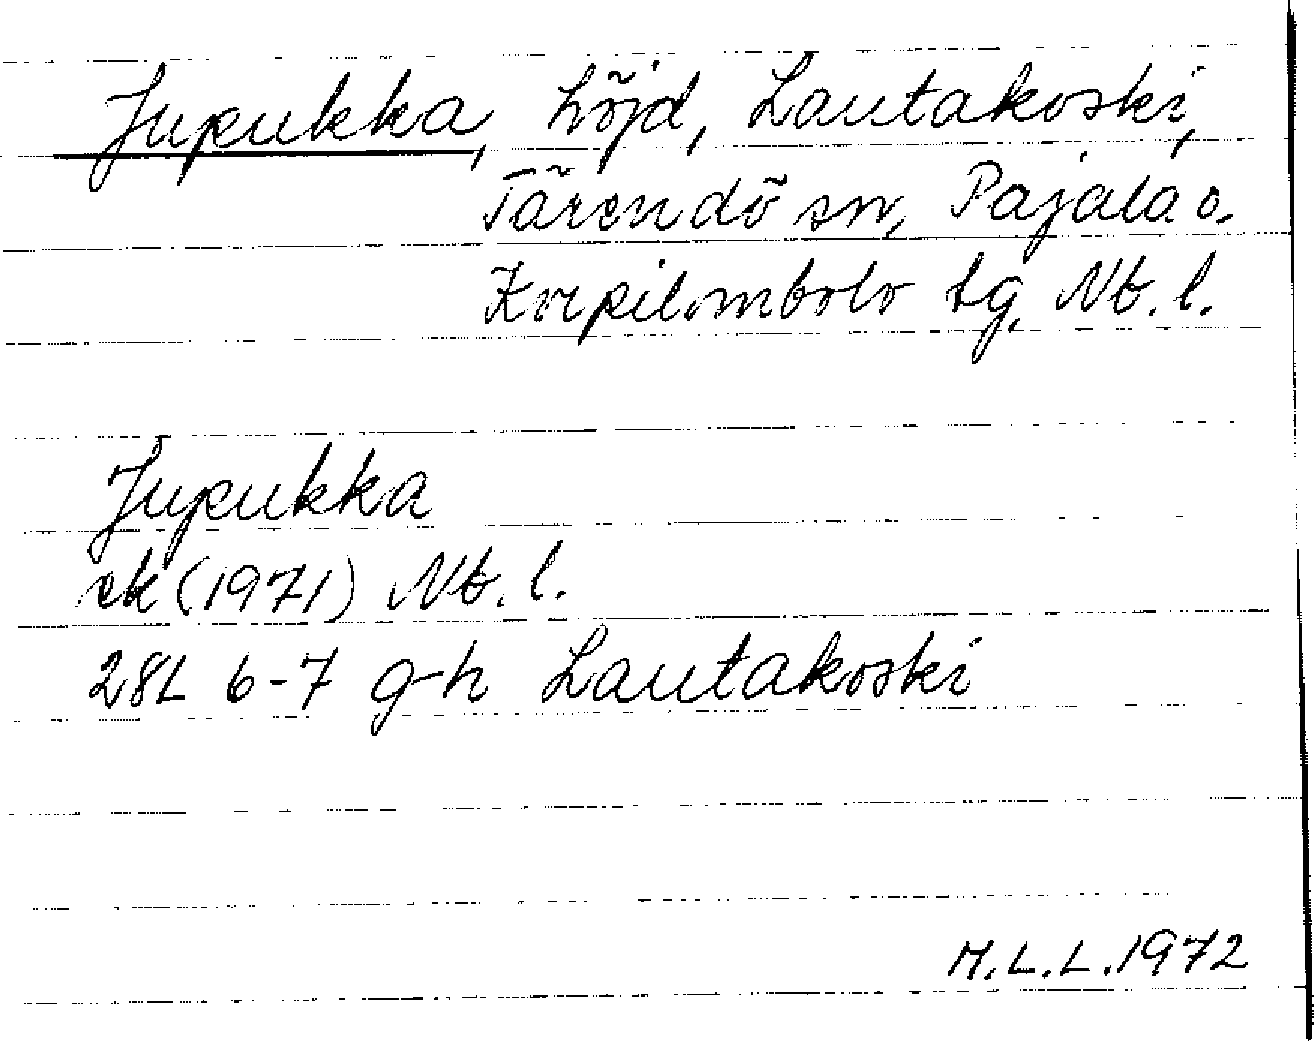 Jupukka, höjd, Lautakoski,
Tärendö sn, Pajala o.
Korpilombolo tg, Nb. l.
Jupukka
ek (1971) Nb. l.
28L 6-7 g-h Lautakoski
M.L.L. 1972